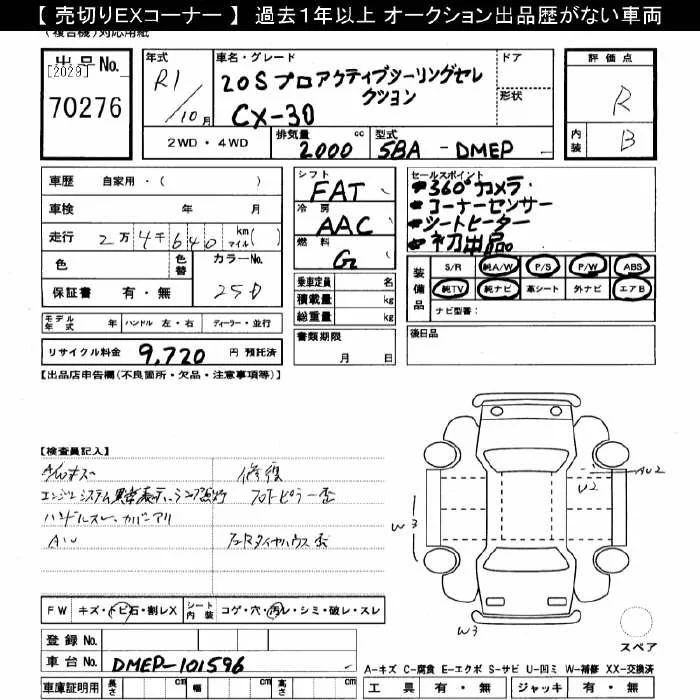 【 売切りEXコーナー 】 過去1年以上 オークション出品歴がない車両
(複合機)対応用紙
出品No.
[2029]
70276
年式
R1/10月
車名・グレード
20S プロアクティブツーリングセレクション
CX-30
ドア
形状
評価点
R
内装
B
2WD・4WD
排気量
2000
cc
型式
5BA-DMEP
車歴 自家用・( )
車検 年 月
走行 2万4千640
km
マイル
( )
色
色替
カラーNo.
保証書 有・無
25D
モデル年式 年
ハンドル 左・右
ディーラー・並行
リサイクル料金 9,720 円 預託済
シフト
FAT
冷房
AAC
燃料
G
乗車定員 名
積載量 kg
総重量 kg
書類期限
月 日
セールスポイント
360°カメラ
コーナーセンサー
シートヒーター
初出品
装備品
S/R 純A/W P/S P/W ABS
純TV 純ナビ 革シート 外ナビ エアB
ナビ型番:
後日品
【出品店申告欄(不良箇所・欠品・注意事項等)】
【検査員記入】
A/Wキズ
修復
エンジンシステム異常表示、ランプ点灯
フロントピラー歪
ハンドルスレ、カバーアリ
AU
AU2
U2
W3
W3
FW
キズ・トビ石・割レX
シート内装
コゲ・穴・汚レ・シミ・破レ・スレ
登録 No.
車台 No.
DMEP-101596
車庫証明用
長さ
cm
幅
cm
高さ
cm
スペア
A-キズ C-腐食 E-エクボ S-サビ U-凹ミ W-補修 XX-交換済
工具 有・無
ジャッキ 有・無